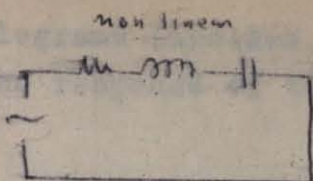 non linear